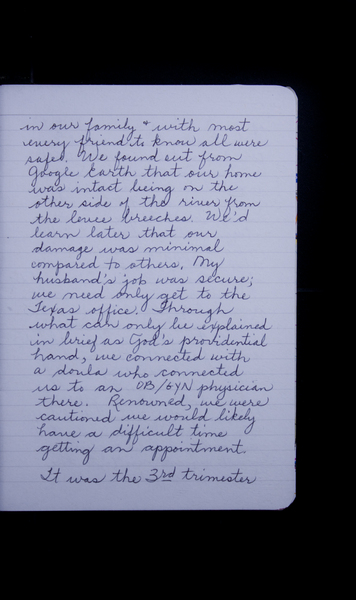 in our family & with most
every friend to know all were
safe. We found out from
Google Earth that our home
was intact being on the
other side of the river from
the levee breeches. We'd
learn later that our
damage was minimal
compared to others. My
husband's job was secure;
we need only get to the
Texas office. Through
what can only be explained
in brief as God's providential
hand, we connected with
a doula who connected
us to an OB/GYN physician
there. Renowned, we were
cautioned we would likely
have a difficult time
getting an appointment.
It was the 3rd trimester